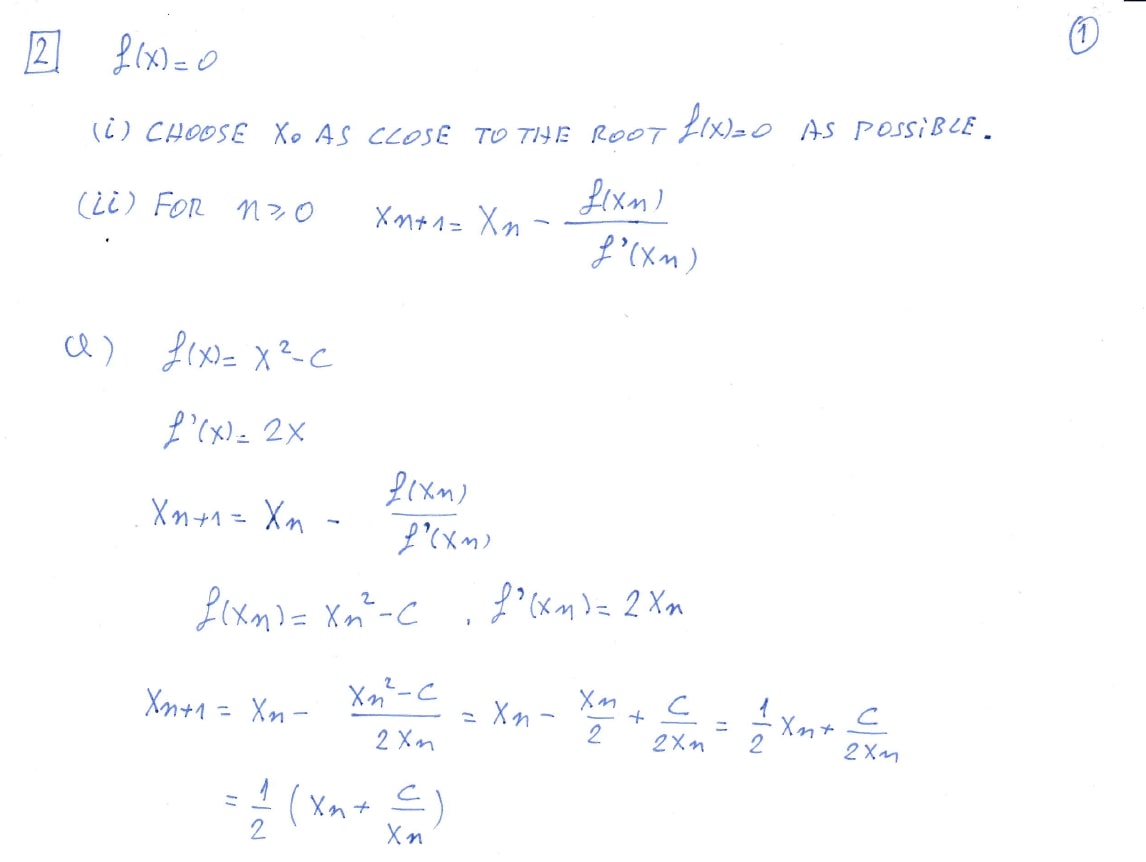 [2] f(x)=0 (1)
(i) CHOOSE X₀ AS CLOSE TO THE ROOT f(x)=0 AS POSSIBLE.
(ii) FOR n≥0 Xn+1 = Xn - f(Xn)/f'(Xn)
a) f(x)= x²-c
f'(x)= 2x
Xn+1 = Xn - f(Xn)/f'(Xn)
f(Xn)= Xn²-c , f'(Xn)= 2Xn
Xn+1 = Xn - (Xn²-c)/(2Xn) = Xn - Xn/2 + c/(2Xn) = 1/2 Xn + c/(2Xn)
= 1/2 (Xn + c/Xn)